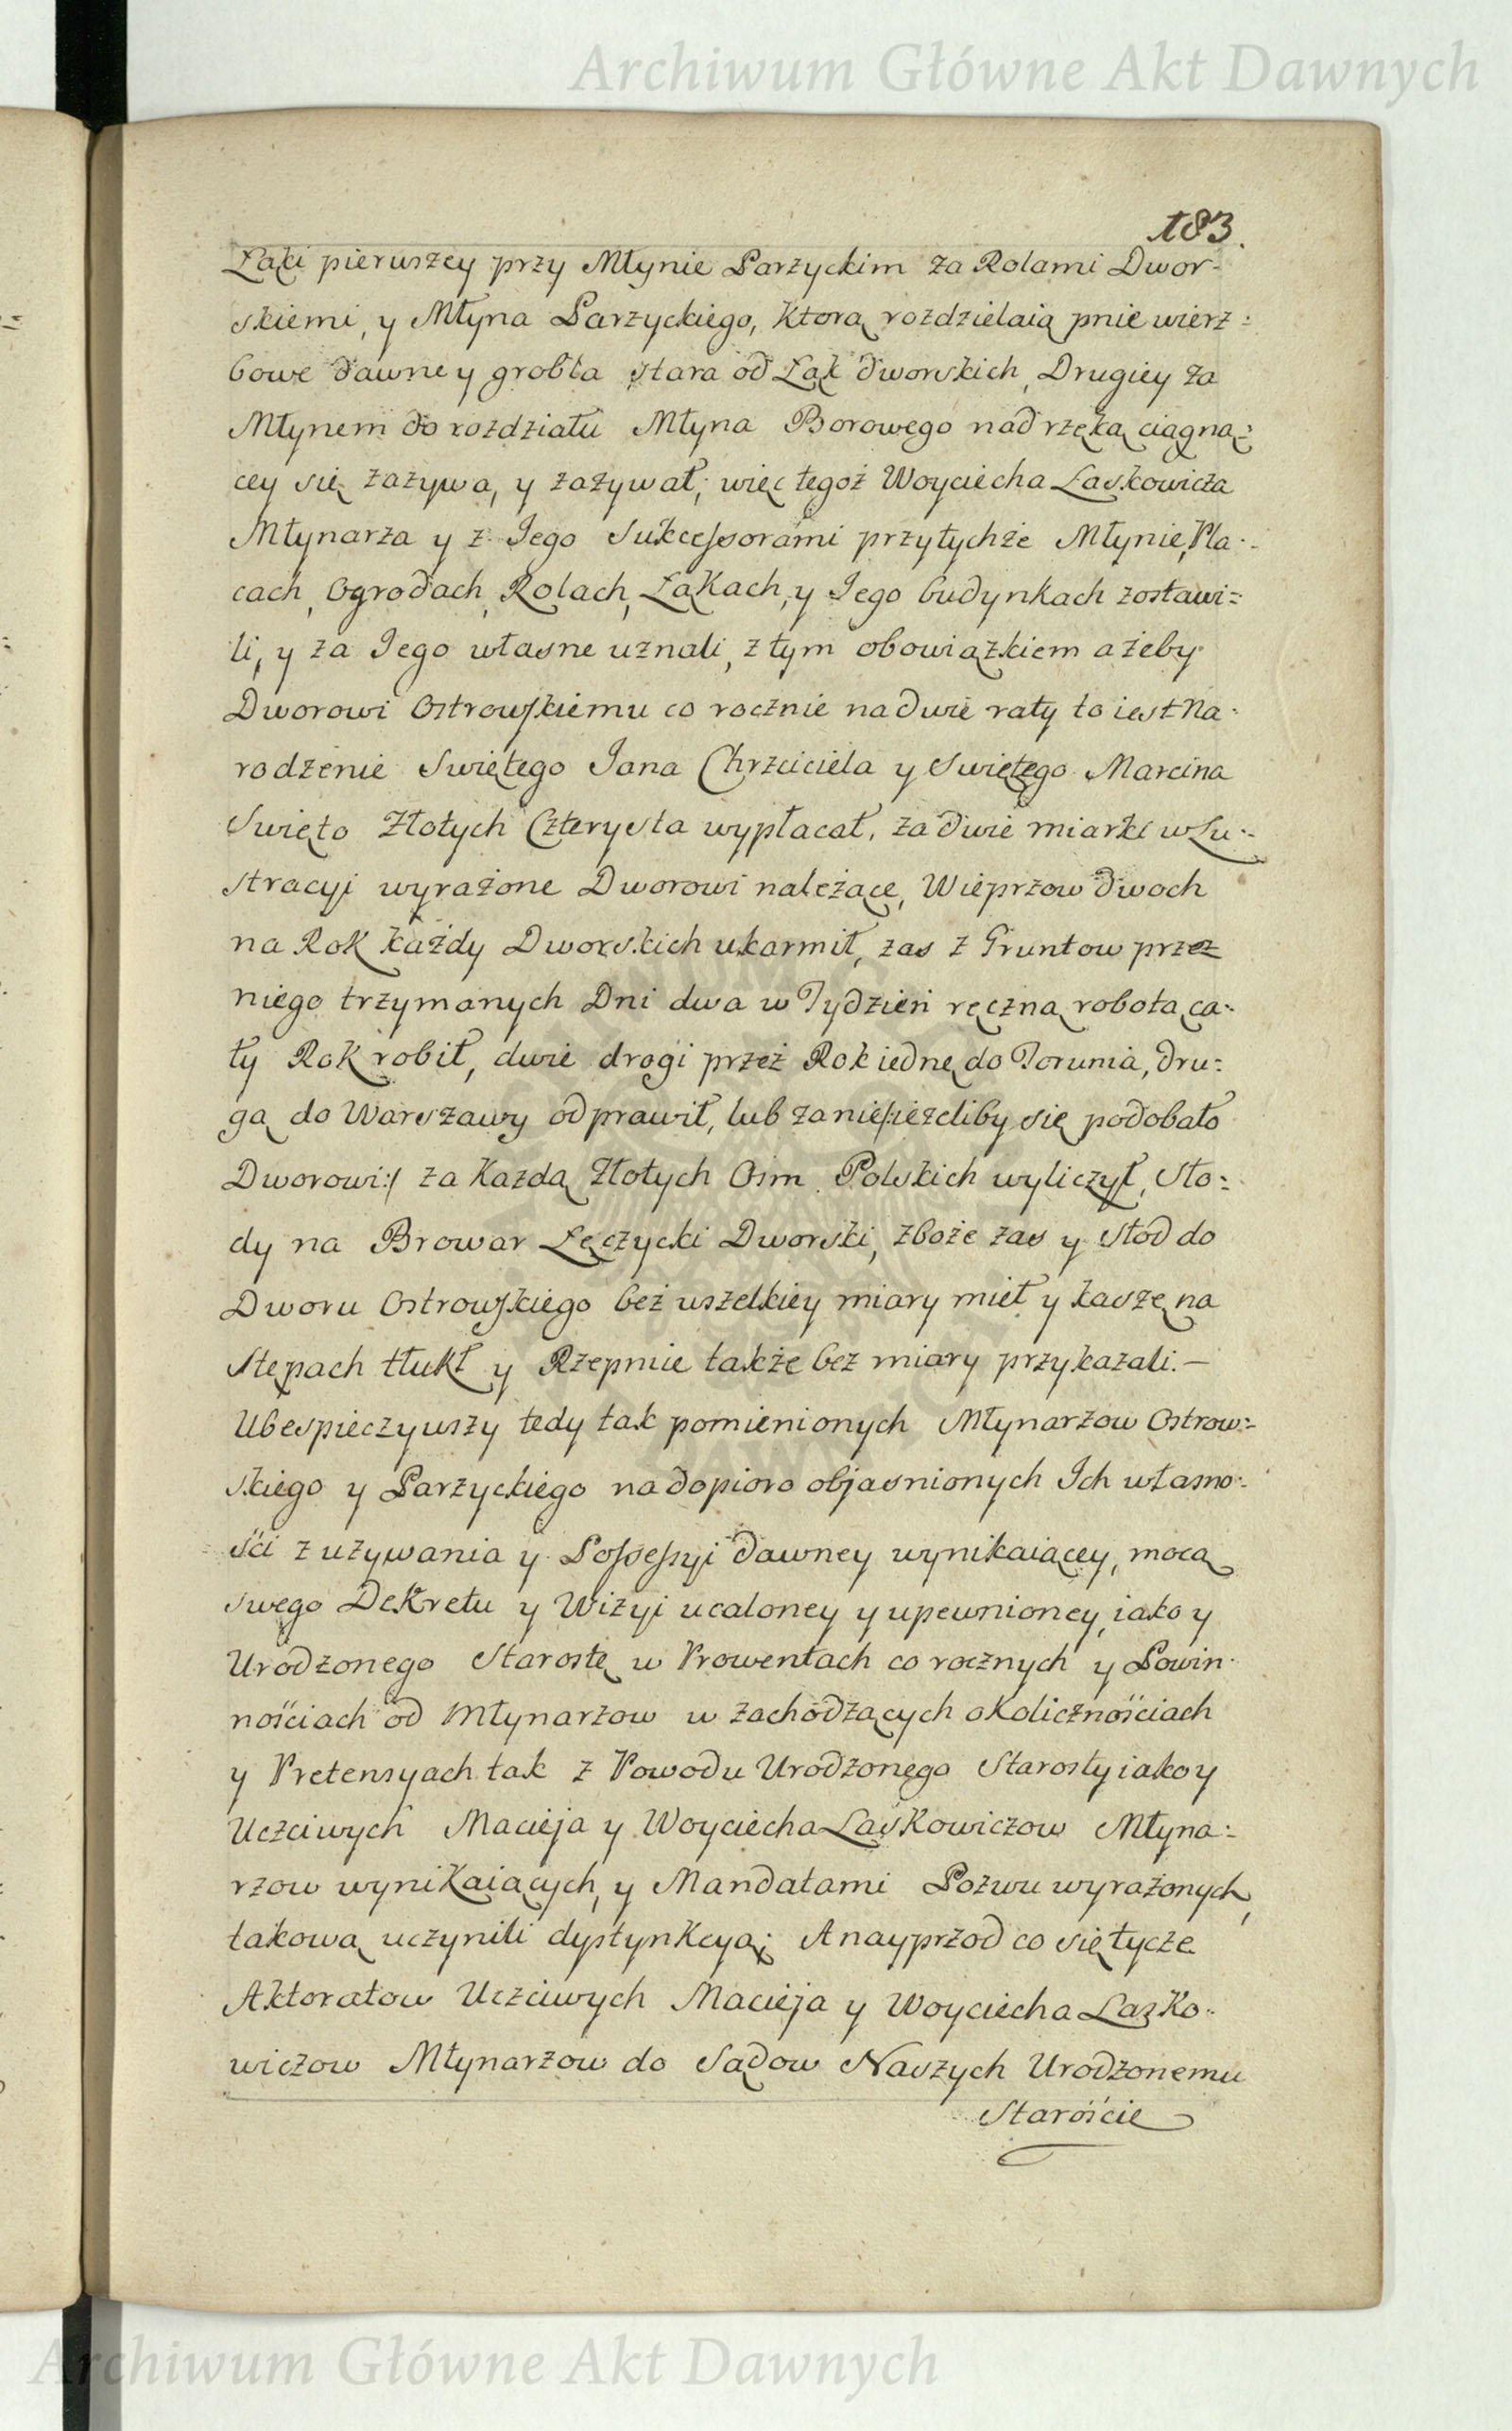 Archiwum Główne Akt Dawnych
183.
Łąki pierwszey przy Młynie Parzyckim za Rolami Dwor-
skiemi, y Młyna Parzyckiego, Ktorą rozdzielaią pnie wierz:
bowe dawne y grobla stara od Łąk dworskich, Drugiey za
Młynem do rozdziału Młyna Borowego nad rzęką ciągną:
cey się zazywa, y zazywał; więc tegoż Woyciecha Laskowicza
Młynarza y z Jego Sukcessorami przytychże Młynie, Pla:
cach, Ogrodach, Rolach, Łąkach, y Jego budynkach zostawi=
li, y za Jego własne uznali, z tym obowiązkiem ażeby
Dworowi Ostrowskiemu co rocznie na dwie raty to iest Na:
rodzenie Swiętego Jana Chrzciciela y Swiętego Marcina
Swięto Złotych Czterysta wypłacał, za dwie miarki w Lu:
stracyi wyrażone Dworowi należące, Wieprzow dwoch
na Rok każdy Dworskich ukarmił, zas z Gruntow przez
niego trzymanych Dni dwa w Tydzień ręczną robotą ca:
ły Rok robił, dwie drogi przez Rok iednę do Torunia, dru:
gą do Warszawy odprawił, lub za nie/:ieżeliby się podobało
Dworowi:/ za Kazdą Złotych Osm Polskich wyliczył, Sło:
dy na Browar Łęczycki Dworski, zboże zas y słod do
Dworu Ostrowskiego bez wszelkiey miary mieł y kaszę na
Stępach tłukł y Rzepnie także bez miary przykazali.—
Ubespieczywszy tedy tak pomienionych Młynarzow Ostrow:
skiego y Parzyckiego na dopioro objasnionych Ich własno:
ści z używania y Possessyi dawney wynikaiącey, mocą
swego Dekretu y Wizyi ucaloney y upewnioney, iako y
Urodzonego Starostę w Prowentach co rocznych y Powin:
nościach od Młynarzow w zachodzących okolicznościach
y Pretensyach tak z Powodu Urodzonego Starosty iako y
Uczciwych Macieja y Woyciecha Laskowiczow Młyna:
rzow wynikaiących, y Mandatami Pozwu wyrażonych,
takową uczynili dystynkcyą; A nayprzod co się tycze
Aktoratow Uczciwych Macieja y Woyciecha Lazko:
wiczow Młynarzow do Sądow Naszych Urodzonemu
Starościе
Archiwum Główne Akt Dawnych